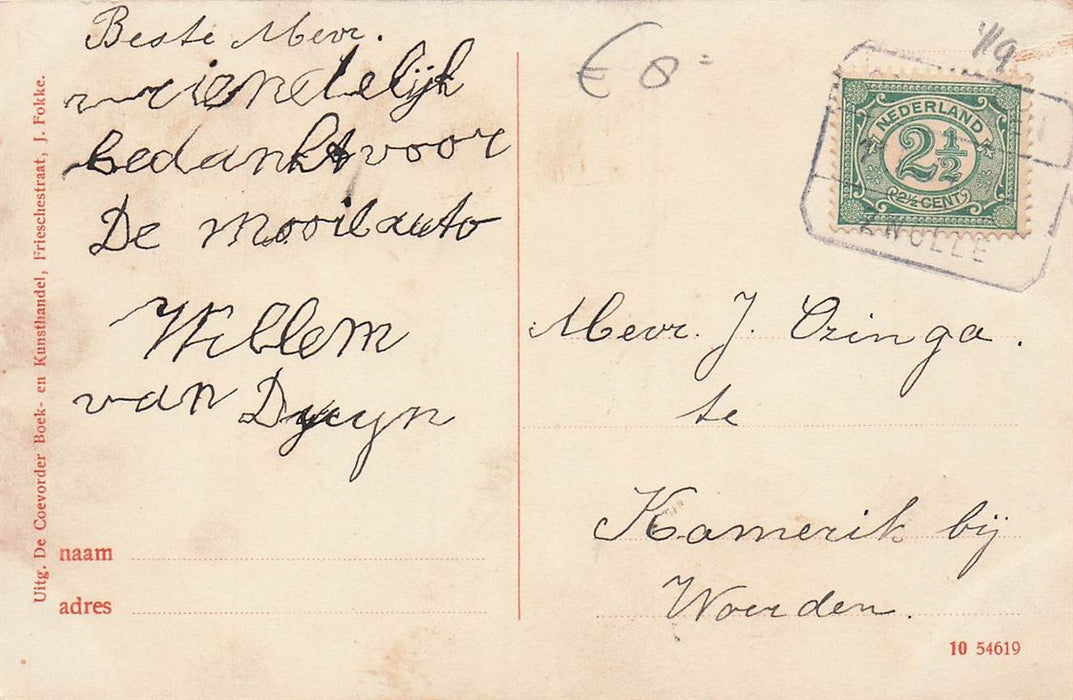 Beste Mevr.
vriendelijk
bedankt voor
De mooie auto
Willem
van Duyn
naam
adres
Uitg. De Coevorder Boek- en Kunsthandel, Frieschestraat, J. Fokke.
€ 8=
NEDERLAND
2½
2½ CENT
ZWOLLE
Mevr. J. Ozinga.
te
Kamerik bij
Woerden.
10 54619